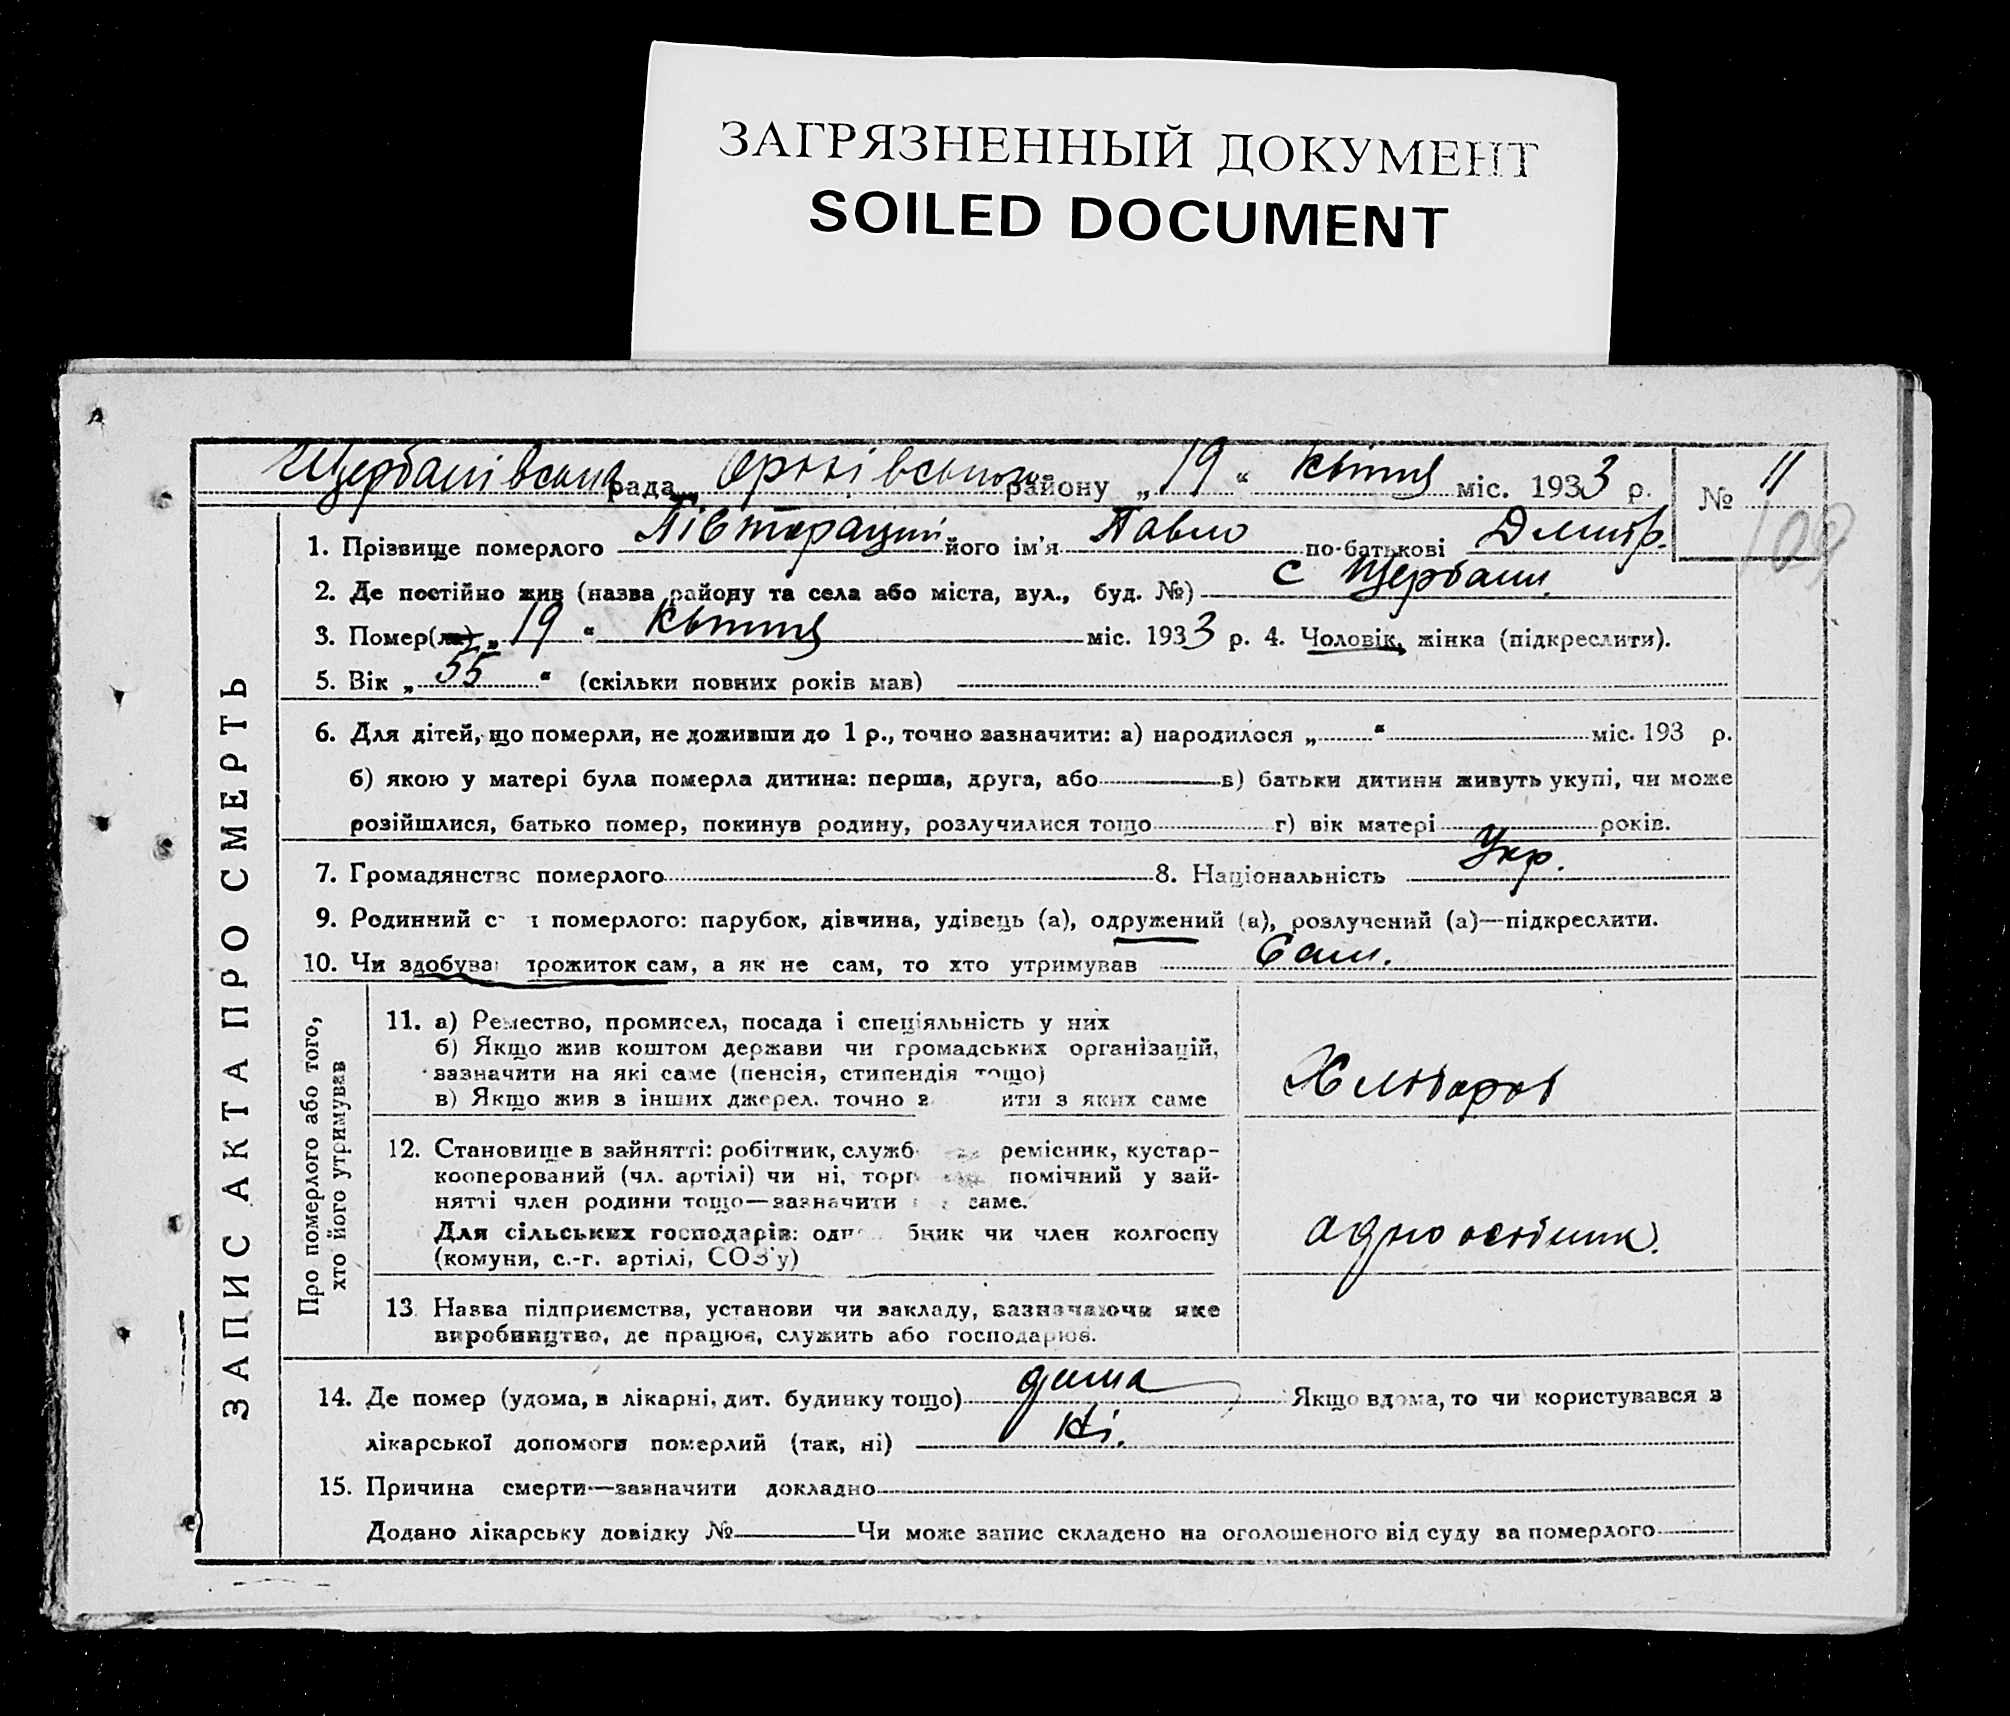 ЗАГРЯЗНЕННЫЙ ДОКУМЕНТ
SOILED DOCUMENT
Щербанівська рада району „19“ квітня міс. 1933 р. № 11
109
ЗАПИС АКТА ПРО СМЕРТЬ
1. Прізвище померлого Півторацкий його ім'я Павло по-батькові Дмитр.
2. Де постійно жив (назва району та села або міста, вул., буд. №) с Щербани.
3. Помер(ла) „19“ квітня міс. 1933 р. 4. Чоловік, жінка (підкреслити).
5. Вік „55“ (скільки повних років мав)
6. Для дітей, що померли, не доживши до 1 р., точно зазначити: а) народилося „ “ міс. 193 р.
б) якою у матері була померла дитина: перша, друга, або в) батьки дитини живуть укупі, чи може
розійшлися, батько помер, покинув родину, розлучилися тощо г) вік матері років.
7. Громадянство померлого 8. Національність Укр.
9. Родинний померлого: парубок, дівчина, удівець (а), одружений (а), розлучений (а)—підкреслити.
10. Чи здобував прожиток сам, а як не сам, то хто утримував Сам.
Про померлого або того,
хто його утримував
11. а) Ремество, промисел, посада і спеціяльність у них
б) Якщо жив коштом держави чи громадських організацій,
зазначити на які саме (пенсія, стипендія тощо)
в) Якщо жив з інших джерел. точно з яких саме
Хлібороб
12. Становище в зайнятті: робітник, служб ремісник, кустар-
кооперований (чл. артілі) чи ні, торг помічний у зай-
нятті член родини тощо—зазначити саме.
Для сільських господарів: одн бник чи член колгоспу
(комуни, с.-г. артілі, СОЗ'у)
одноосібник.
13. Назва підприємства, установи чи закладу, зазначаючи яке
виробництво, де працює, служить або господарює.
14. Де помер (удома, в лікарні, дит. будинку тощо) дома Якщо вдома, то чи користувався з
лікарської допомоги померлий (так, ні) Ні.
15. Причина смерти—зазначити докладно
Додано лікарську довідку № Чи може запис складено на оголошеного від суду за померлого